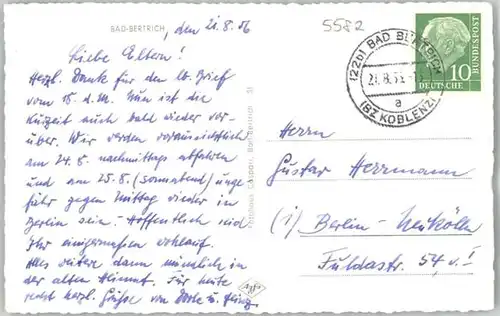 BAD-BERTRICH, den 21.8.56
5582
Liebe Eltern!
Herzl. Dank für den lb. Brief
vom 18. d.M. Nun ist die
Kurzeit auch bald wieder vor-
über. Wir werden voraussichtlich
am 24.8. nachmittags abfahren
und am 25.8. (Sonnabend) unge-
fähr gegen Mittag wieder in
Berlin sein. Hoffentlich seid
Ihr einigermaßen wohlauf.
Alles weitere dann mündlich in
der alten Heimat. Für heute
recht herzl. Grüße von Dorle u. Heinz
Bad Bertrich
(22b) BAD BERTRICH
21.8.56
a
(BZ KOBLENZ)
10
DEUTSCHE
BUNDESPOST
Herrn
Gustav Herrmann
(1) Berlin-Neukölln
Fuldastr. 54, v. I